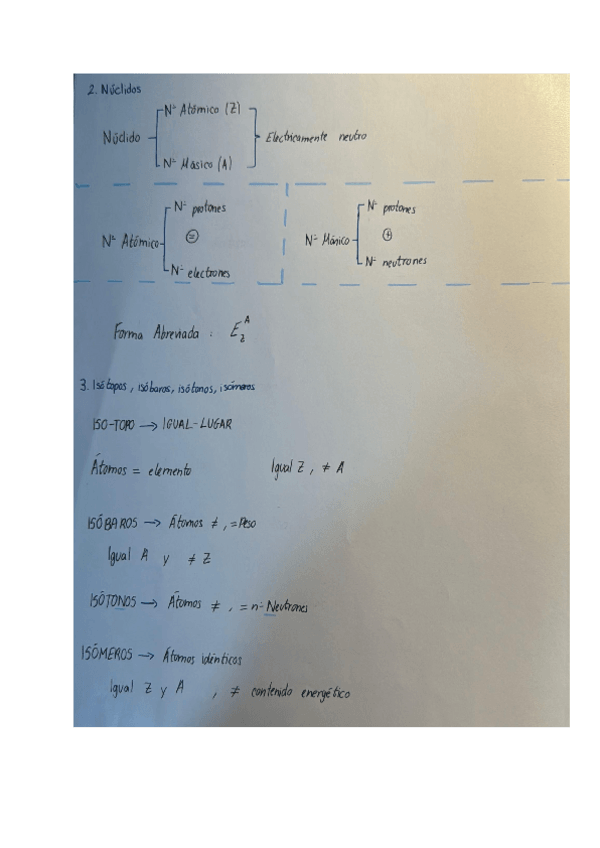 2. Núclidos
Nº Atómico (Z)
Núclido
Electricamente neutro
Nº Másico (A)
Nº protones
Nº Atómico
=
Nº electrones
Nº protones
Nº Másico
+
Nº neutrones
Forma Abreviada : E A Z
3. Isótopos, isóbaros, isótonos, isómeros
ISO-TOPO → IGUAL-LUGAR
Átomos = elemento Igual Z, ≠ A
ISÓBAROS → Átomos ≠, = Peso
Igual A y ≠ Z
ISÓTONOS → Átomos ≠, = nº Neutrones
ISÓMEROS → Átomos idénticos
Igual Z y A , ≠ contenido energético